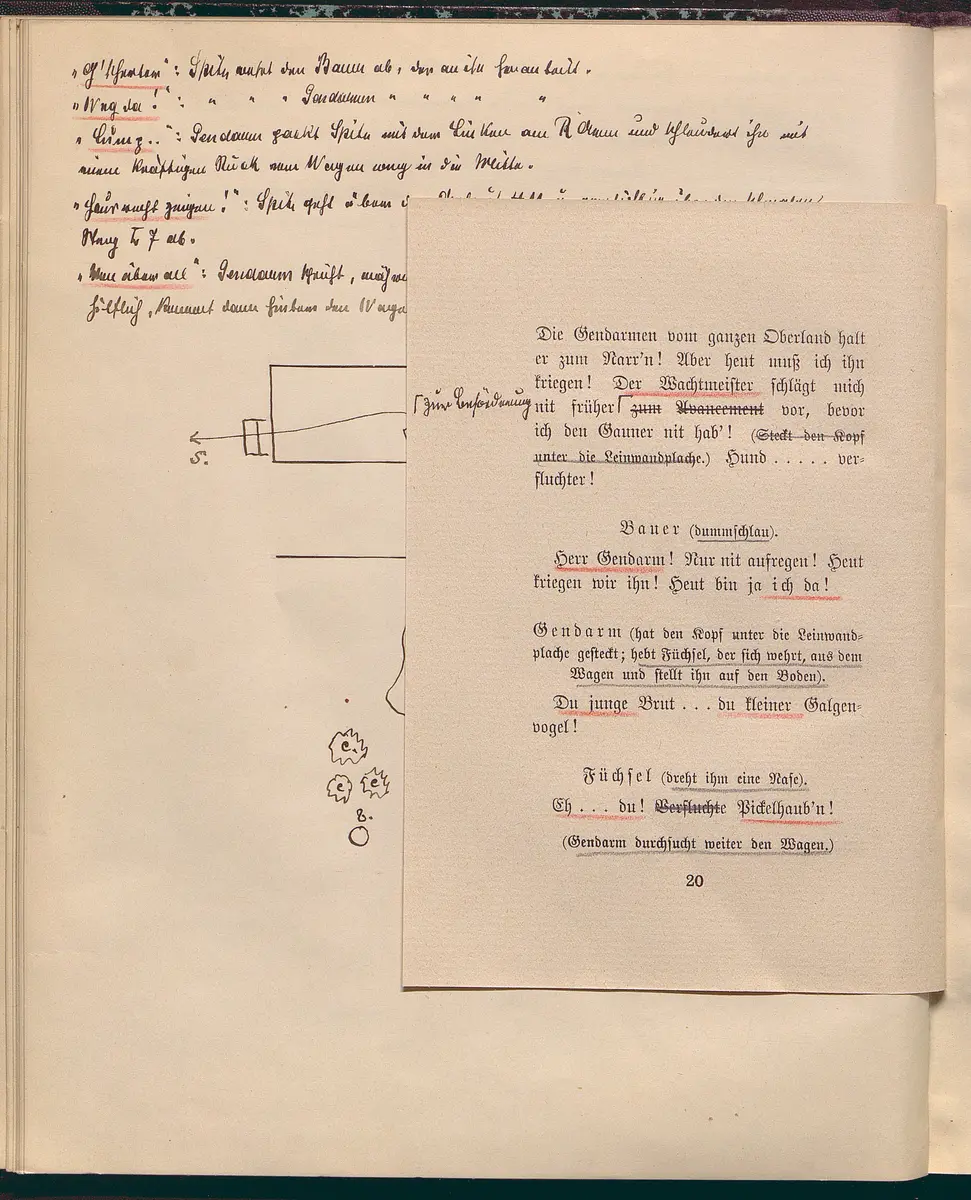 „G'scherter": Spitz wehrt den Bauer ab, der an ihn herantritt.
„Weg da!": " " " Gendarmen " " " " "
„Lump..": Gendarm packt Spitz mit der Linken am R Arm und schleudert ihn mit
einem kräftigen Ruck vom Wagen weg in die Mitte.
zeigen!": Spitz geht über
Weg 7 ab.
überall": Gendarm
kommt dann hinter den Wagen
Die Gendarmen vom ganzen Oberland halt
er zum Narr'n! Aber heut muß ich ihn
kriegen! Der Wachtmeister schlägt mich
⌈zur Beförderung
nit früher⌈ zum Avancement vor, bevor
ich den Gauner nit hab'! (Steckt den Kopf
unter die Leinwandplache.) Hund ..... ver-
fluchter!
Bauer (dummschlau).
Herr Gendarm! Nur nit aufregen! Heut
kriegen wir ihn! Heut bin ja ich da!
Gendarm (hat den Kopf unter die Leinwand-
plache gesteckt; hebt Füchsel, der sich wehrt, aus dem
Wagen und stellt ihn auf den Boden).
Du junge Brut ... du kleiner Galgen-
vogel!
Füchsel (dreht ihm eine Nase).
Eh ... du! Verfluchte Pickelhaub'n!
(Gendarm durchsucht weiter den Wagen.)
20
S.
e.
e
e
8.